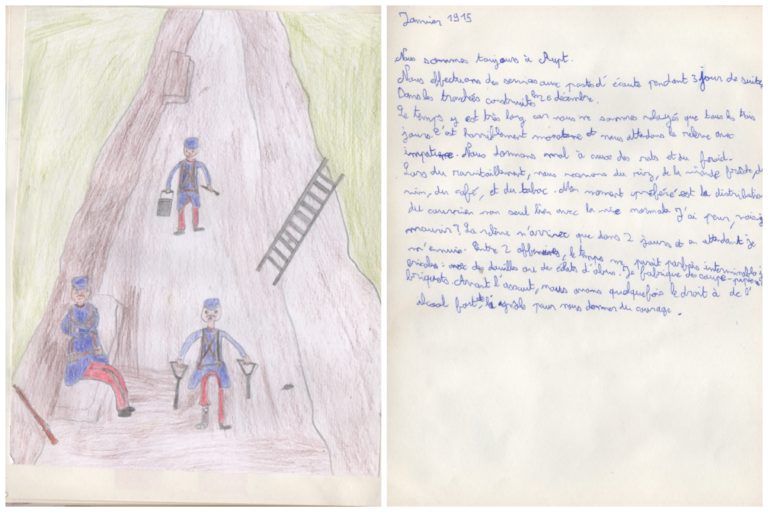 Janvier 1915
Nous sommes toujours à Rupt.
Nous effectuons des services aux postes d'écoute pendant 3 jours de suite
Dans les tranchées construites en décembre.
Le temps y est très long car nous ne sommes relayés que tous les trois
jours. C'est horriblement monotone et nous attendons la relève avec
impatience. Nous dormons mal à cause des rats et du froid.
Lors du ravitaillement, nous recevons du riz, de la viande froide, du
vin, du café, et du tabac. Mon moment préféré est la distribution
du courrier mon seul lien avec la vie normale J'ai peur, vais-je
mourir? La relève n'arrive que dans 2 jours et en attendant je
m'ennuie. Entre 2 offensives, le temps me parait parfois interminable je
bricole avec des douilles ou des éclats d'obus. Je fabrique des coupe-papiers
briquets. Avant l'assaut, nous avons quelquefois le droit à de l'
alcool fort pour nous donner du courage.